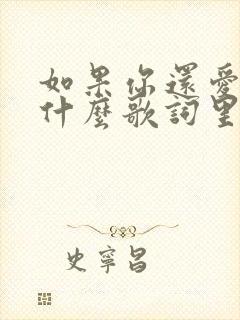 如果你還愛
什麼歌詞里
史寧昌